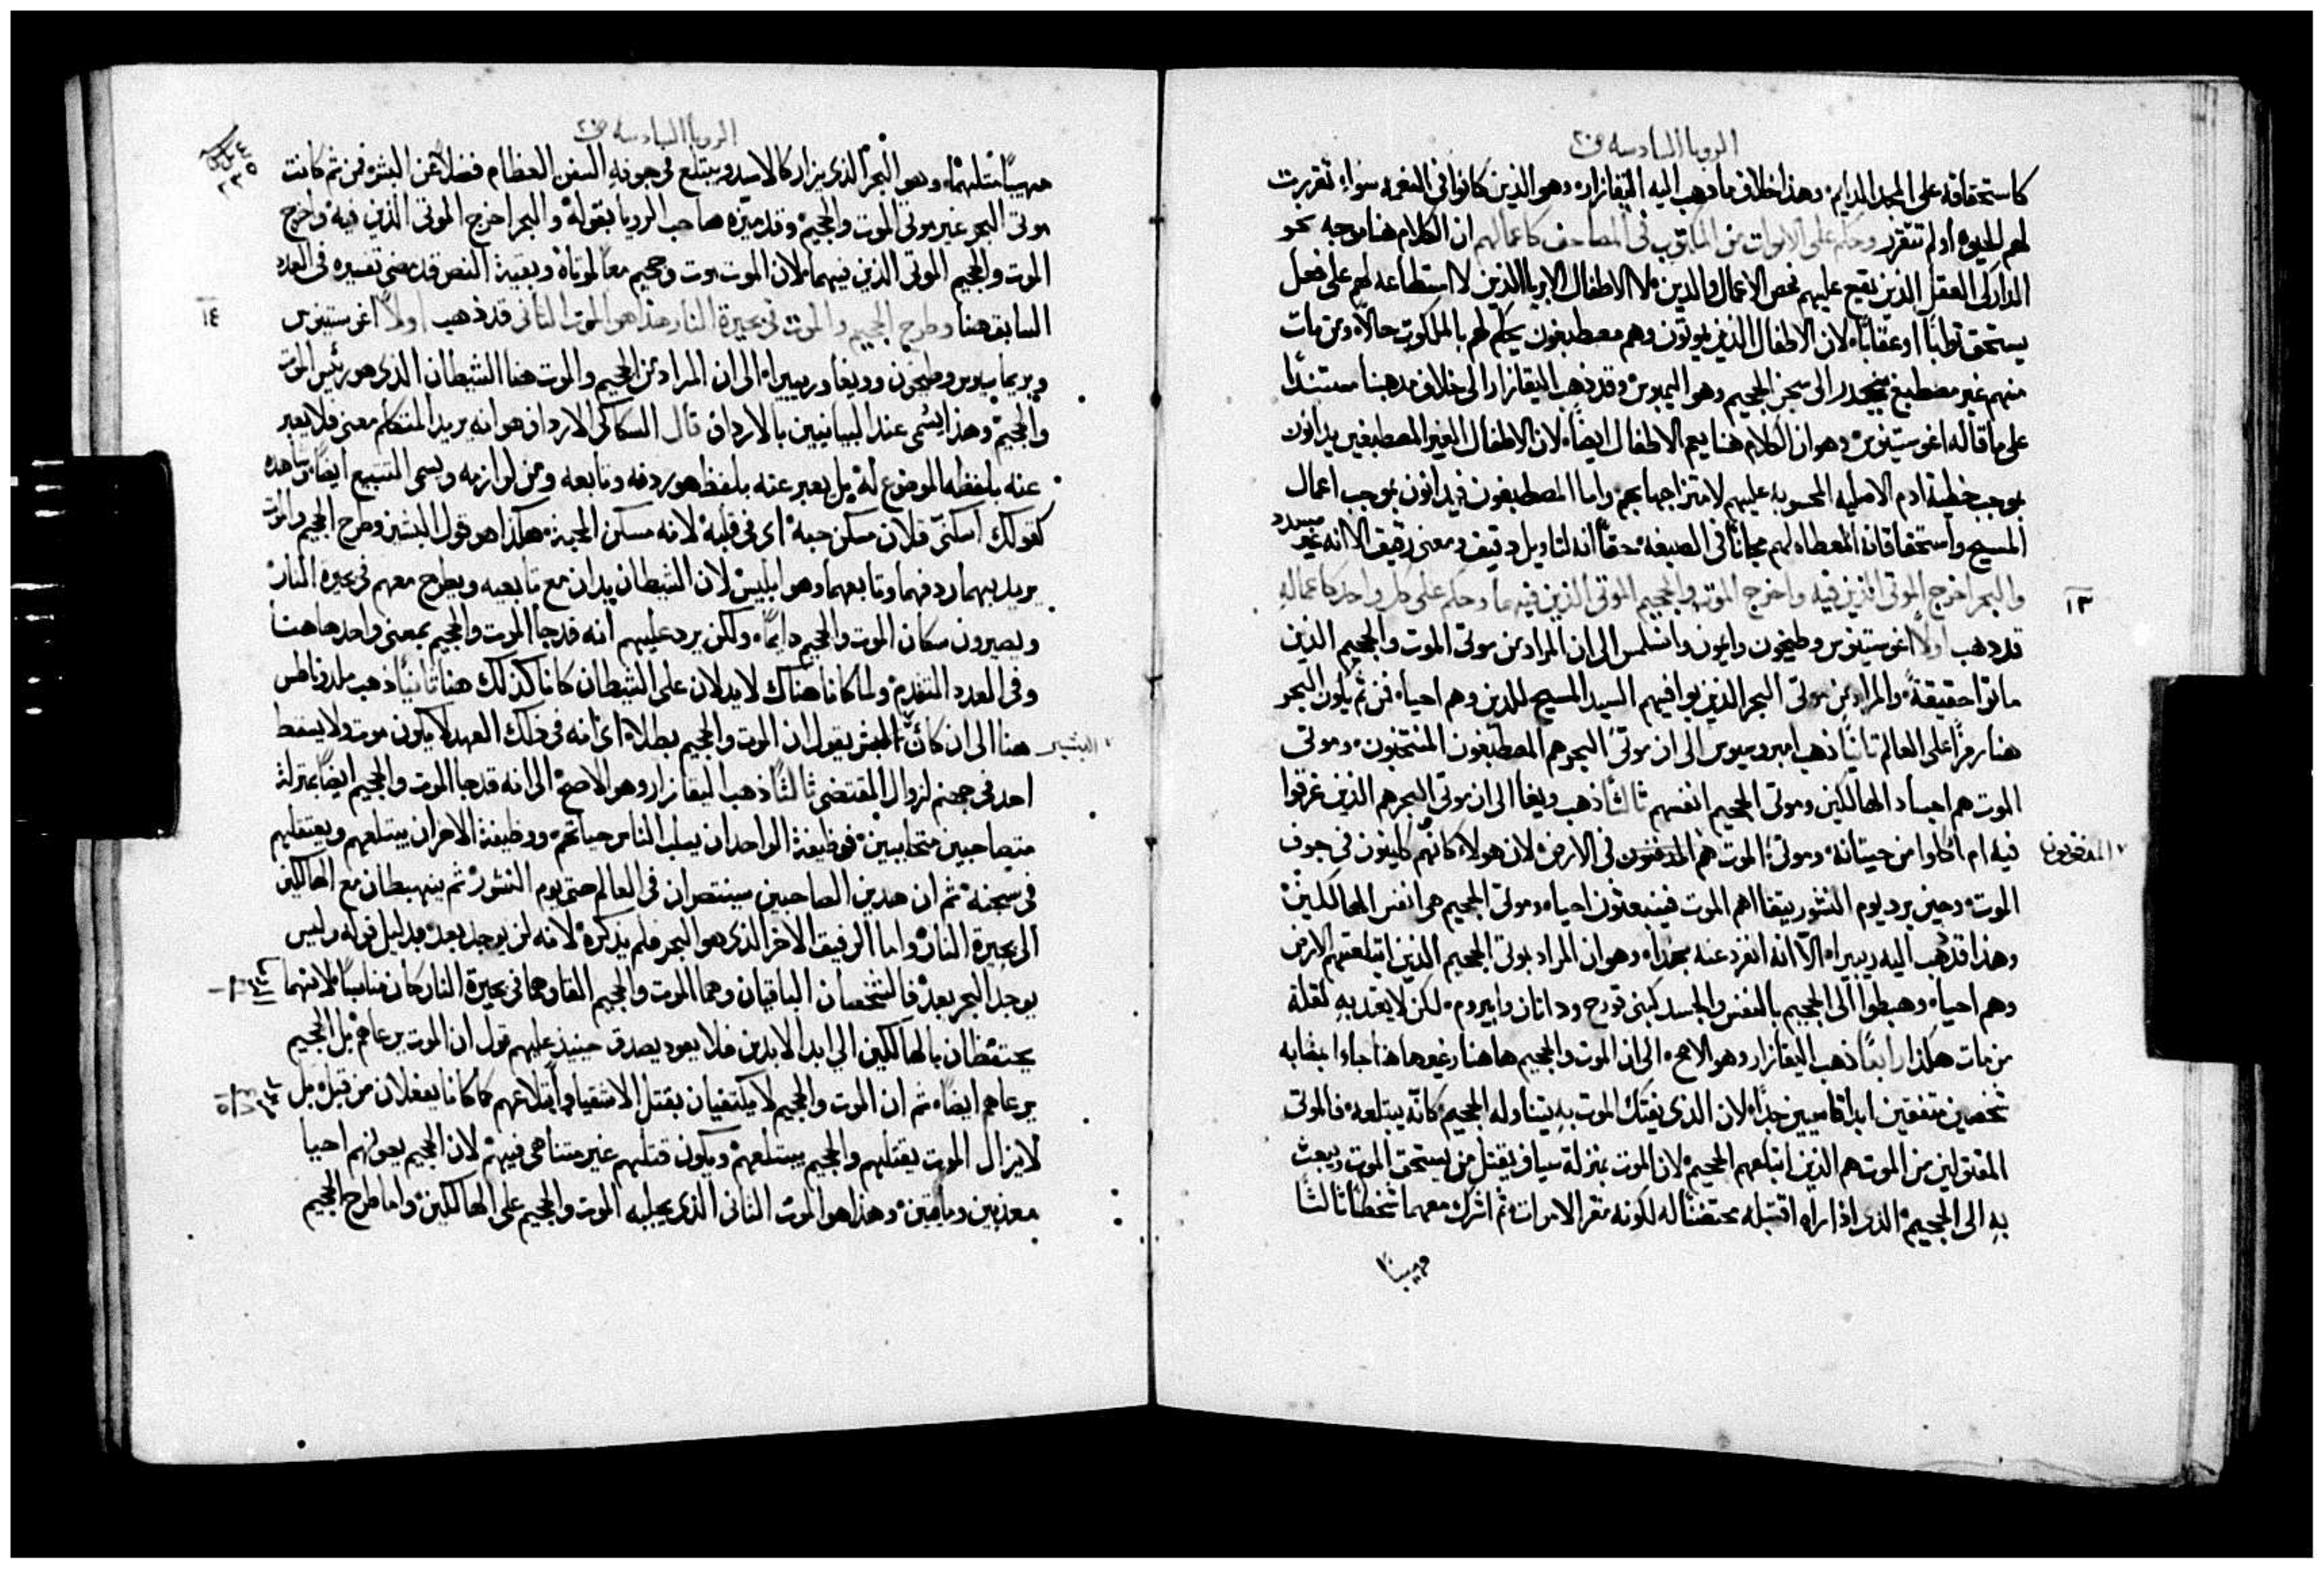 الرويا السادسه ف٢٠
كاستحقاقه على المجد الدايم، وهذا خلاف ما ذهب اليه اليقازار، وهو الذين كانوا في النعمه سواء تقررت
لهم الحيوه او لم تتقرر وحكم على الاموات من المكتوب في المصاحف كاعمالهم ان الكلام هنا موجه نحو
الداركى العقل الذين تقع عليهم فحص الاعمال والدين، لا الاطفال الابريا الذين لا استطاعه لهم على فعل
يستحق ثوابًا او عقابًا، لان الاطفال الذين يموتون وهم مصطبغون يحكم لهم بالملكوت حالاً، ومن مات
منهم غير مصطبغ ينحدر الى سجن الجحيم وهو اليمبوس وقد ذهب اليقازار الى خلاف مذهبنا مستندًا
على ما قاله اغوستينوس، وهو ان الكلام هنا يعم الاطفال ايضًا، لان الاطفال الغير المصطبغين يدانون
بموجب خطية ادم الاصليه المحسوبه عليهم لامتزاجها بهم، واما المصطبغون فيدانون بموجب اعمال
المسيح واستحقاقاته المعطاه لهم مجانًا في الصبغه، حقًا انه لتاويل دقيق ومعنى رقيق الا انه غير مسدد
١٣
والبحر اخرج الموتى الذين فيه واخرج الموت والجحيم الموتى الذين فيهما وحكم على كل واحد كاعماله
قد ذهب اولاً اغوستينوس وطيخون وايمون وانسلمس الى ان المراد من موتى الموت والجحيم الذين
ماتوا حقيقةً، والمراد من موتى البحر الذين يوافيهم السيد المسيح للدين وهم احياء، فمن ثم يكون البحر
هنا رمزًا على العالم ثانيًا ذهب امبروسيوس الى ان موتى البحر هم المصطبغون المنتخبون، وموتى
الموت هم اجساد الهالكين وموتى الجحيم انفسهم ثالثًا ذهب ويغا الى ان موتى البحر هم الذين غرقوا
فيه ام اكلوا من حيتانه، وموتى الموت هم المدفنون في الارض، لان هولاء كانهم كاينون في جوف
المدفونون
الموت، وحين يرد يوم النشور يتقيا اهم الموت فينبعثون احياء، وموتى الجحيم هي انفس الهالكين،
وهذا قد ذهب اليه ريبيرا، الاّ انه انفرد عنه بهذا، وهو ان المراد بموتى الجحيم الذين ابتلعتهم الارض
وهم احياء، وهبطوا الى الجحيم بالنفس والجسد كبني قورح وداثان وابيروم، لكن لا يعتد به لقلة
من مات هكذا رابعًا ذهب اليقازار وهو الاصح، الى ان الموت والجحيم هاهنا وغيرها هنا جاءا بمثابه
شخصين متفقين ابدًا قاسيين جدًا، لان الذي يفتك الموت به يتناوله الجحيم، كانّه يبتلعه، فالموتى
المقتولين من الموت هم الذين ابتلعهم الجحيم، لان الموت بمنزلة سياف يقتل من يستحق الموت ويبعث
به الى الجحيم، الذي اذا راه اقتبله محتضنًا له لكونه مقر الاموات، ثم اشرك معهما شخصًا ثالثًا
مهيبًا
الرويا السادسه ف٢٠
مهيبًا مثلهما، وهو البحر الذي يزار كالاسد ويبتلع في جوفه السفن العظام فضلاً عن البشر، فمن ثم كانت
موتى البحر غير موتى الموت والجحيم، وقد ميّزه صاحب الرويا بقوله، والبحر اخرج الموتى الذين فيه، واخرج
الموت والجحيم الموتى الذين فيهما، لان الموت موت وجحيم معًا لموتاه، وبقية النص قد مضى تفسيره في العدد
١٤
السابق هنا وطرح الجحيم والموت في بحيرة النار هذا هو الموت الثاني قد ذهب اولاً اغوستينوس
وبريماسيوس وطيخون وويغا وريبيرا، الى ان المراد من الجحيم والموت هنا الشيطان الذي هو رئيس الموت
والجحيم، وهذا يسمى عند البيانيين بالارداف قال السكاكي الارداف هو انه يريد المتكلم معنى فلا يعبر
عنه بلفظه الموضوع له، بل يعبر عنه بلفظ هو ردفه وتابعه ومن لوازمه ويسمى التتبيع ايضًا، شاهده
كقولك اسكنّي فلان مسكن حبه، اي في قلبه، لانه مسكن المحبة، هكذا هو قول البشير وطرح الجحيم والموت
يريد بهما ردفهما وتابعهما وهو ابليس، لان الشيطان يدان مع تابعيه ويطرح معهم في بحيرة النار،
ويصيرون سكان الموت والجحيم دايمًا، ولكن يرد عليهم انه قد جا الموت والجحيم بمعنى واحد هاهنا
وفي العدد المتقدم، ولما كانا هناك لا يدلان على الشيطان كانا كذلك هنا ثانيًا ذهب ملدوناطس
هنا الى ان كانّ البشير يقول ان الموت والجحيم بطلا، اي انه في ذلك العهد لا يكون موت ولا يسقط
البشير
احد في جهنم لزوال المقتضى ثالثًا ذهب اليقازار وهو الاصح، الى انه قد جا الموت والجحيم ايضًا بمنزلة
متصاحبين متحابيين، فوظيفة الواحد ان يسلب الناس حياتهم، ووظيفة الاخر ان يبتلعهم ويعتقلهم
في سجنه، ثم ان هذين الصاحبين سينتصران في العالم حتى يوم النشور، ثم ينهبطان مع الهالكين
الى بحيرة النار، واما الرفيق الاخر الذي هو البحر فلم يذكره، لانه لن يوجد بعد، بدليل قوله وليس
يوجد البحر بعد، فالشخصان الباقيان وهما الموت والجحيم القاوهما في بحيرة النار كان مناسبًا، لانهما
يحتفظان بالهالكين الى ابد الابدين فلا يعود يصدق حينيذ عليهم قول ان الموت يرعاهم، بل الجحيم
يرعاهم ايضًا، ثم ان الموت والجحيم لا يكتفيان بقتل الاشقيا وابتلاعهم كما كانا يفعلان من قبل، بل
لا يزال الموت يقتلهم والجحيم يبتلعهم، ويكون قتلهم غير متناهي فيهم، لان الجحيم يعولهم احيا
معذبين ومايتين، وهذا هو الموت الثاني الذي يجلبه الموت والجحيم على الهالكين، واما طرح الجحيم